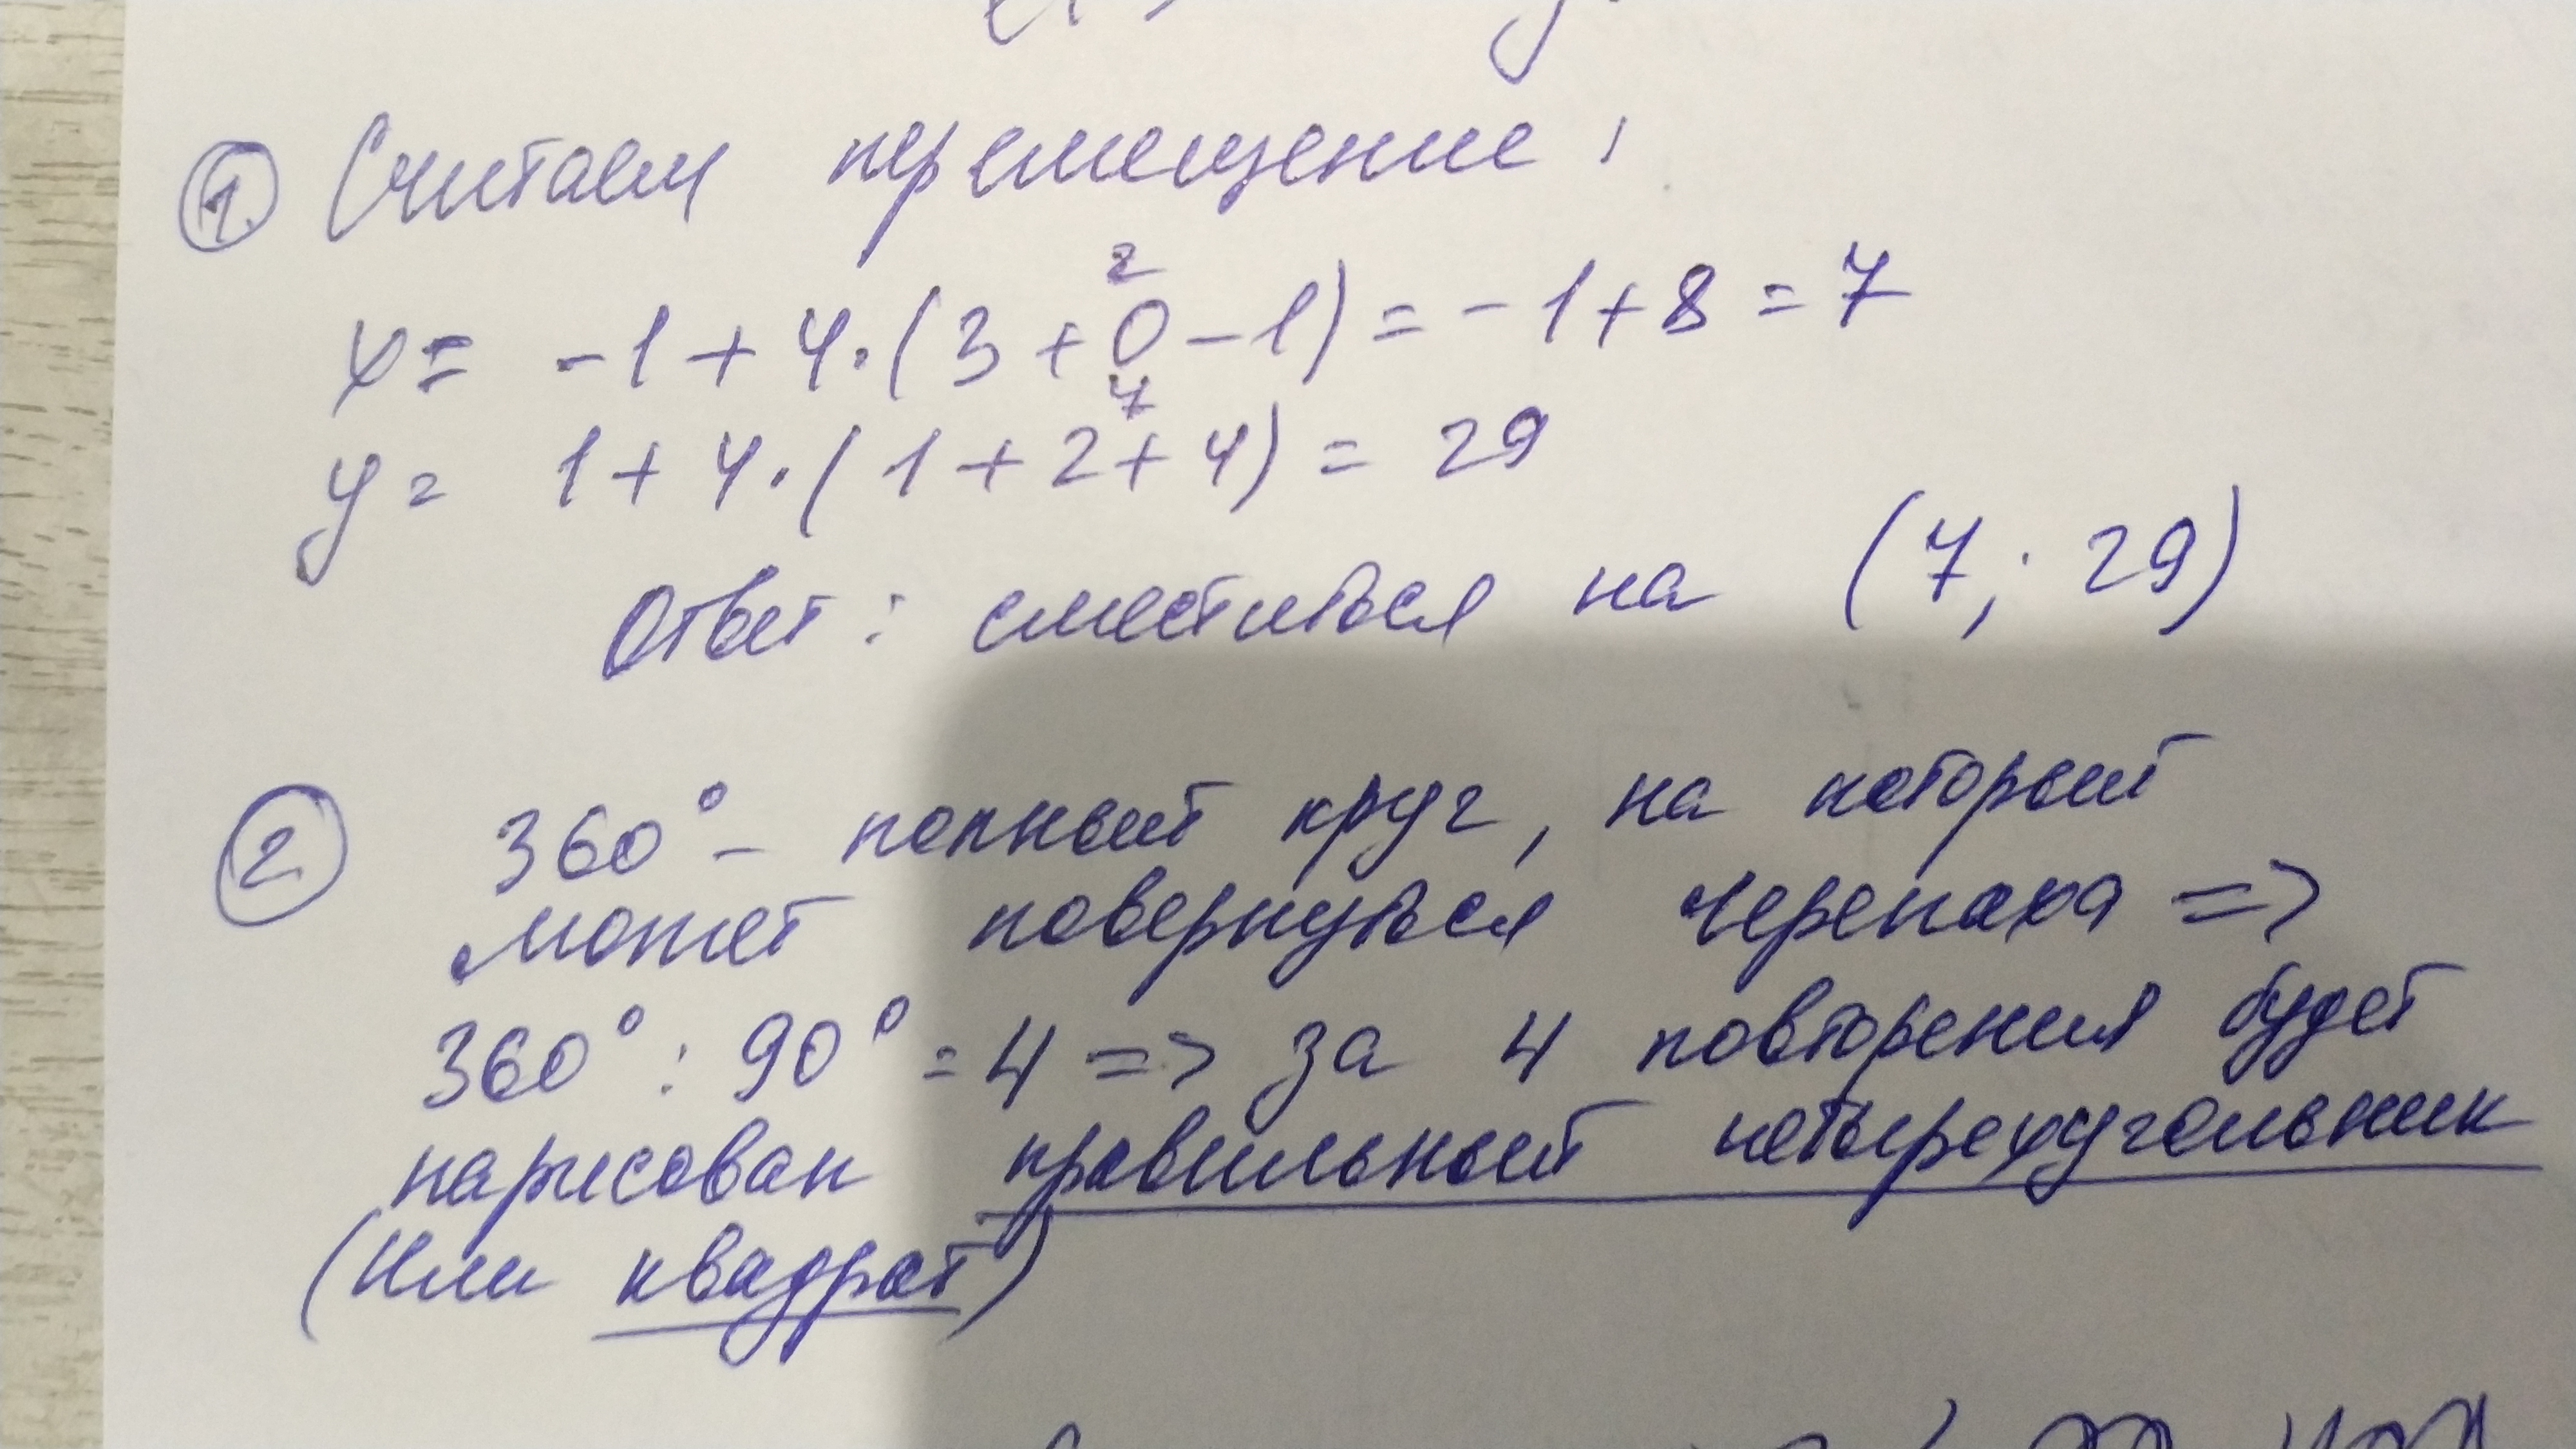 1. Считаем перемещение:
2
x = -1 + 4·(3 + 0 - 1) = -1 + 8 = 7
7
y = 1 + 4·(1 + 2 + 4) = 29
Ответ: сместиться на (7; 29)
2. 360° - полный круг, на который
может повернуться черепаха =>
360° : 90° = 4 => за 4 повторения будет
нарисован правильный четырехугольник
(или квадрат)